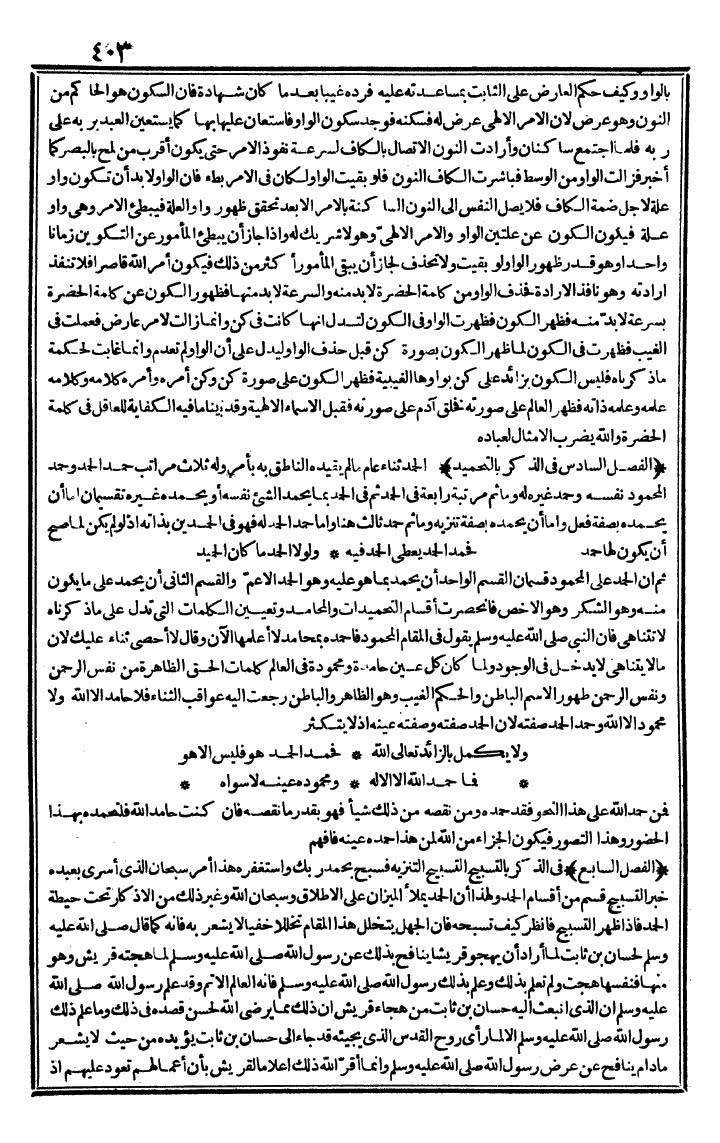 ٤٠٣
بالواو وكيف حكم العارض على الثابت بمساعدته عليه فرده غيبا بعد ما كان شهادة فان السكون هو الحاكم من
النون وهو عرض لان الامر الالهى عرض له فسكنه فوجد سكون الواو فاستعان عليها بها كما يستعين العبد بربه على
ربه فلما اجتمع ساكنان وأرادت النون الاتصال بالكاف لسرعة نفوذ الامر حتى يكون أقرب من لمح بالبصر كما
أخبر فزالت الواو من الوسط فباشرت الكاف النون فلو بقيت الواو لكان فى الامر بطء فان الواو لابد أن تكون واو
علة لاجل ضمة الكاف فلا يصل النفس الى النون الساكنة بالامر الا بعد تحقق ظهور واو العلة فيبطئ الامر وهى واو
علة فيكون الكون عن علتين الواو والامر الالهىّ وهو لاشريك له واذا جاز أن يبطئ المأمور عن التكوين زمانا
واحدا وهو قدر ظهور الواو لو بقيت ولا تحذف لجاز أن يبقى المأمور أكثر من ذلك فيكون أمر الله قاصرا فلا تنفذ
ارادته وهو نافذ الارادة فحذف الواو من كلمة الحضرة لابد منه والسرعة لابد منها فظهور الكون عن كلمة الحضرة
بسرعة لابدّ منه فظهر الكون فظهرت الواو فى الكون لتدل انها كانت فى كن وانما زالت لامر عارض فعملت فى
الغيب فظهرت فى الكون لما ظهر الكون بصورة كن قبل حذف الواو ليدل على أن الواو لم تعدم وانما غابت لحكمة
ما ذكرناه فليس الكون بزائد على كن بواوها الغيبية فظهر الكون على صورة كن وكن أمره وأمره كلامه وكلامه
علمه وعلمه ذاته فظهر العالم على صورته فخلق آدم على صورته فقبل الاسماء الالهية وقد بينا ما فيه الكفاية للعاقل فى كلمة
الحضرة والله يضرب الامثال لعباده
﴿الفصل السادس فى الذكر بالتحميد﴾ الحمد ثناء عام مالم يقيده الناطق به بأمر وله ثلاث مراتب حمد الحمد وحمد
المحمود نفسه وحمد غيره له وماثم مرتبة رابعة فى الحمد ثم فى الحمد بما يحمد الشئ نفسه أو يحمده غيره تقسيمان اما أن
يحمده بصفة فعل واما أن يحمده بصفة تنزيه وماثم حمد ثالث هنا واما حمد الحمد له فهو فى الحمدين بذاته اذ لو لم يكن لما صح
أن يكون لها حمد فحمد الحمد يعطى الحمد فيه * ولولا الحمد ما كان الحميد
ثم ان الحمد على المحمود قسمان القسم الواحد أن يحمد بما هو عليه وهو الحمد الاعمّ والقسم الثانى أن يحمد على ما يكون
منه وهو الشكر وهو الاخص فانحصرت أقسام التحميدات والمحامد وتعيين الكلمات التى تدل على ماذكرناه
لا تتناهى فان النبى صلى الله عليه وسلم يقول فى المقام المحمود فاحمده بمحامد لا أعلمها الآن وقال لا أحصى ثناء عليك لان
مالا يتناهى لا يدخل فى الوجود ولما كان كل عين حامدة ومحمودة فى العالم كلمات الحق الظاهرة من نفس الرحمن
ونفس الرحمن ظهور الاسم الباطن والحكم الغيب وهو الظاهر والباطن رجعت اليه عواقب الثناء فلا حامد الا الله ولا
محمود الا الله وحمد الحمد صفته لان الحمد صفته وصفته عينه اذ لا يتكثر
ولا يكمل بالزائد تعالى الله * فحمد الحمد هو فليس الاهو
* فما حمد الله الا الاله * ومحموده عينه لاسواه *
فمن حمد الله على هذا النحو فقد حمده ومن نقصه من ذلك شيأ فهو بقدر ما نقصه فان كنت حامد الله فلتحمده بهذا
الحضور وهذا التصور فيكون الجزاء من الله لمن هذا حمده عينه فافهم
﴿الفصل السابع﴾ فى الذكر بالتسبيح التسبيح التنزيه فسبح بحمد ربك واستغفره هذا أمر سبحان الذى أسرى بعبده
خبر التسبيح قسم من أقسام الحمد ولهذا أن الحمد يملأ الميزان على الاطلاق وسبحان الله وغير ذلك من الاذكار تحت حيطة
الحمد فاذا ظهر التسبيح فانظر كيف تسبيحه فان الجهل يتخلل هذا المقام تخللا خفيا لا يشعر به فانه كما قال صلى الله عليه
وسلم لحسان بن ثابت لما أراد أن يهجو قريشا ينافح بذلك عن رسول الله صلى الله عليه وسلم لما هجته قريش وهو
منها فنفسها هجت ولم تعلم بذلك وعلم بذلك رسول الله صلى الله عليه وسلم فانه العالم الاتم وقد علم رسول الله صلى الله
عليه وسلم ان الذى انبعث اليه حسان بن ثابت من هجاء قريش ان ذلك مما يرضى الله لحسن قصده فى ذلك وما علم ذلك
رسول الله صلى الله عليه وسلم الا لما رأى روح القدس الذى يجيئه قد جاء الى حسان بن ثابت يؤيده من حيث لا يشعر
مادام ينافح عن عرض رسول الله صلى الله عليه وسلم وانما أقرّ الله ذلك اعلاما لقريش بأن أعمالهم تعود عليهم اذ